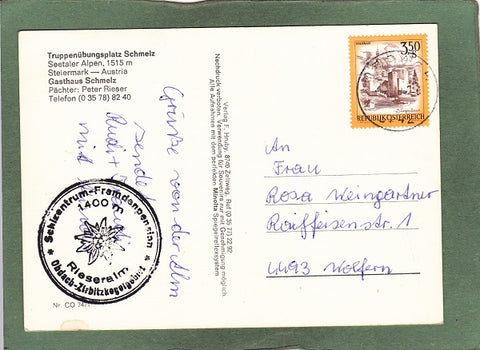 Truppenübungsplatz Schmelz
Seetaler Alpen, 1515 m
Steiermark — Austria
Gasthaus Schmelz
Pächter: Peter Rieser
Telefon (0 35 78) 82 40
Grüße von der Alm
sendet
Rudi +
mit
Schizentrum-Fremdenpension
1400 m
Rieseralm
Obdach-Zirbitzkogelgebiet
Nr. CO
Verlag F. Hruby, 8740 Zeltweg, Ruf (0 35 77) 22 92
Nachdruck verboten. Verwendung für Souvenirs nur mit Genehmigung möglich.
Alle Aufnahmen mit dem perfekten Minolta Spiegelreflexsystem
3.50
REPUBLIK ÖSTERREICH
An
Frau
Rosa Weingartner
Raiffeisenstr. 1
4493 Wolfern